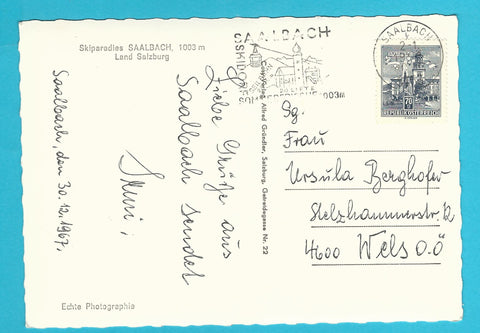 Skiparadies SAALBACH, 1003 m
Land Salzburg
Saalbach, den 30.12.1967.
Liebe Grüße aus
Saalbach sendet
Echte Photographie
Verlag Alfred Gründler, Salzburg, Getreidegasse Nr. 22
SAALBACH
SKIDORF
1003m
SAALBACH
70
REPUBLIK ÖSTERREICH
Sg.
Frau
Ursula Berghofer
Stelzhammerstr. 12
4600 Wels O.Ö